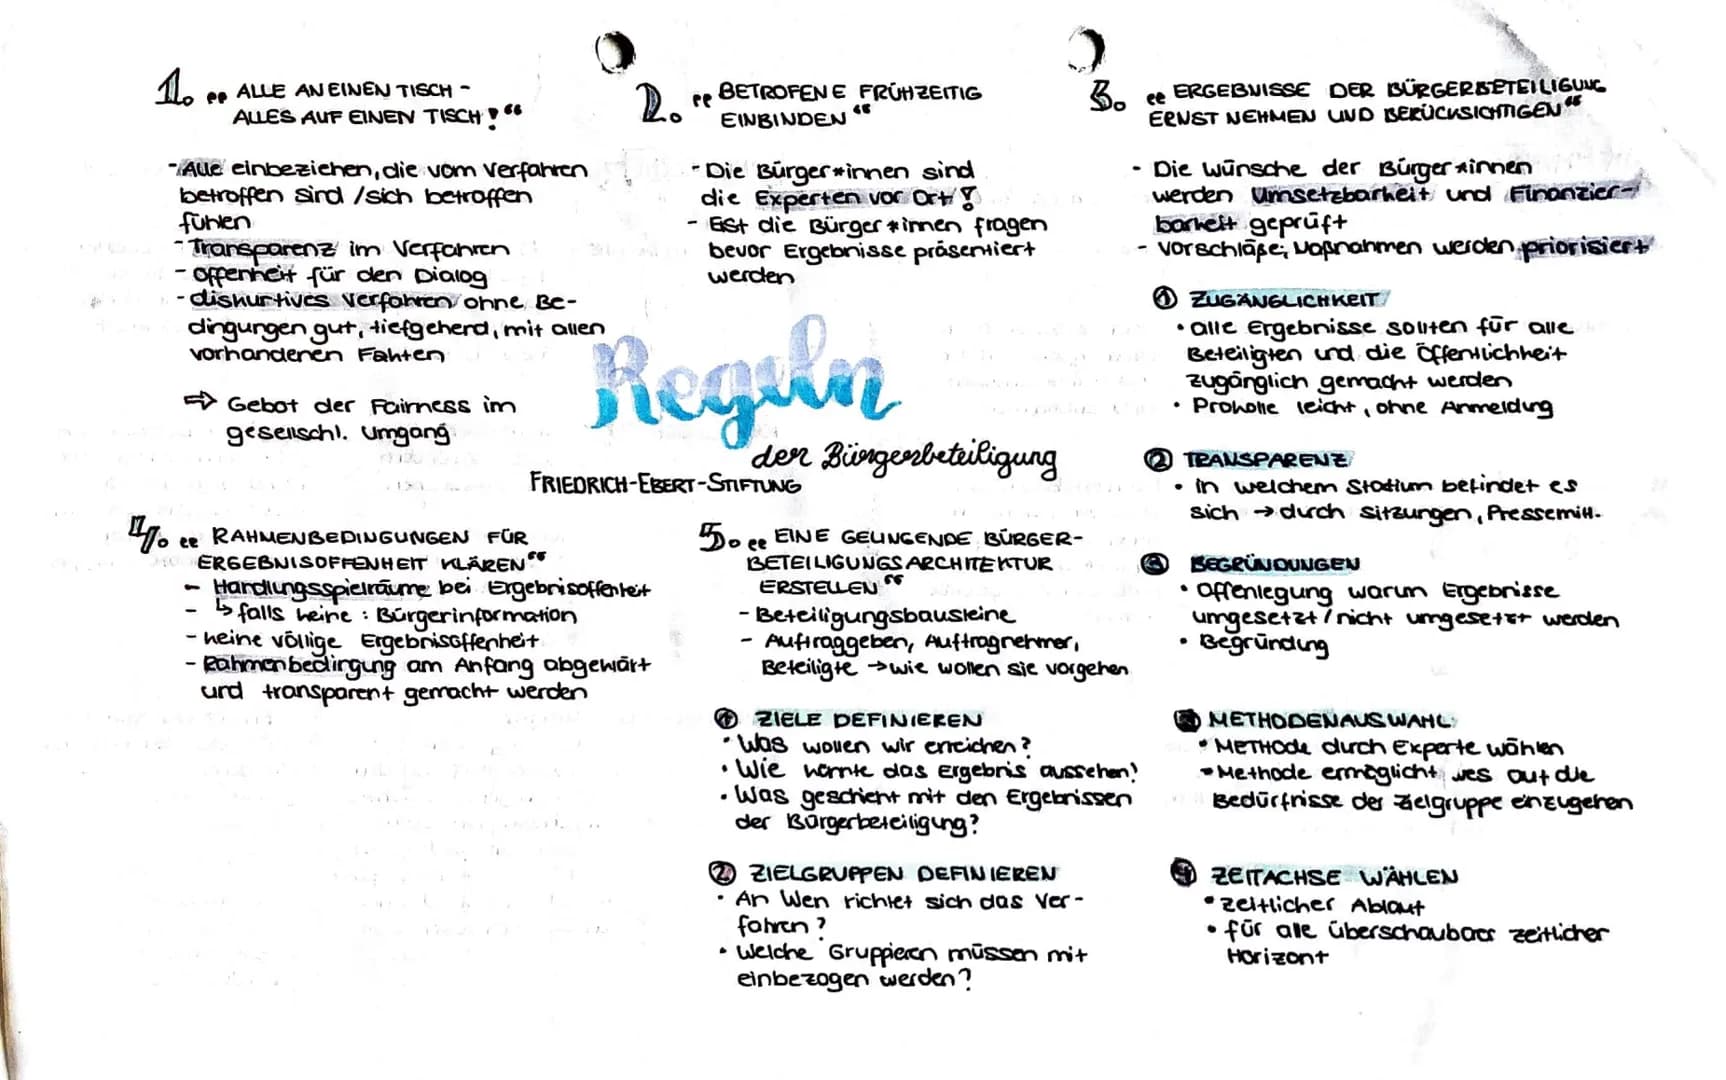 1. „ALLE AN EINEN TISCH -
ALLES AUF EINEN TISCH!“
- Alle einbeziehen, die vom Verfahren
betroffen sind / sich betroffen
fühlen
- Transparenz im Verfahren
- Offenheit für den Dialog
- diskurtives Verfahren ohne Be-
dingungen gut, tiefgehend, mit allen
vorhandenen Fakten
⇨ Gebot der Fairness im
gesellschl. Umgang
2. „BETROFENE FRÜHZEITIG
EINBINDEN“
- Die Bürger*innen sind
die Experten vor Ort!
- Erst die Bürger*innen fragen
bevor Ergebnisse präsentiert
werden
3. „ERGEBNISSE DER BÜRGERBETEILIGUNG
ERNST NEHMEN UND BERÜCKSICHTIGEN“
- Die Wünsche der Bürger*innen
werden Umsetzbarkeit und Finanzier-
barkeit geprüft
- Vorschläge; Maßnahmen werden priorisiert
① ZUGÄNGLICHKEIT
• alle Ergebnisse sollten für alle
Beteiligten und die Öffentlichkeit
zugänglich gemacht werden
• Prokolle leicht, ohne Anmeldung
② TRANSPARENZ
• in welchem Stadium befindet es
sich → durch Sitzungen, Pressemitt.
③ BEGRÜNDUNGEN
• Offenlegung warum Ergebnisse
umgesetzt / nicht umgesetzt werden
• Begründung
Regeln
der Bürgerbeteiligung
FRIEDRICH-EBERT-STIFTUNG
4. „RAHMENBEDINGUNGEN FÜR
ERGEBNISOFFENHEIT KLÄREN“
- Handlungsspielräume bei Ergebnisoffenheit
- ↳ falls keine : Bürgerinformation
- keine völlige Ergebnisoffenheit
- Rahmenbedingung am Anfang abgewärt
und transparent gemacht werden
5. „EINE GELINGENDE BÜRGER-
BETEILIGUNGSARCHITEKTUR
ERSTELLEN“
- Beteiligungsbausteine
- Auftraggeben, Auftragnehmer,
Beteiligte → wie wollen sie vorgehen
① ZIELE DEFINIEREN
• Was wollen wir erreichen?
• Wie könnte das Ergebnis aussehen?
• Was geschieht mit den Ergebnissen
der Bürgerbeteiligung?
② ZIELGRUPPEN DEFINIEREN
• An Wen richtet sich das Ver-
fahren?
• Welche Gruppieren müssen mit
einbezogen werden?
③ METHODENAUSWAHL
• Methode durch Experte wählen
• Methode ermöglicht es auf die
Bedürfnisse der Zielgruppe einzugehen
④ ZEITACHSE WÄHLEN
• zeitlicher Ablauf
• für alle überschaubarer zeitlicher
Horizont